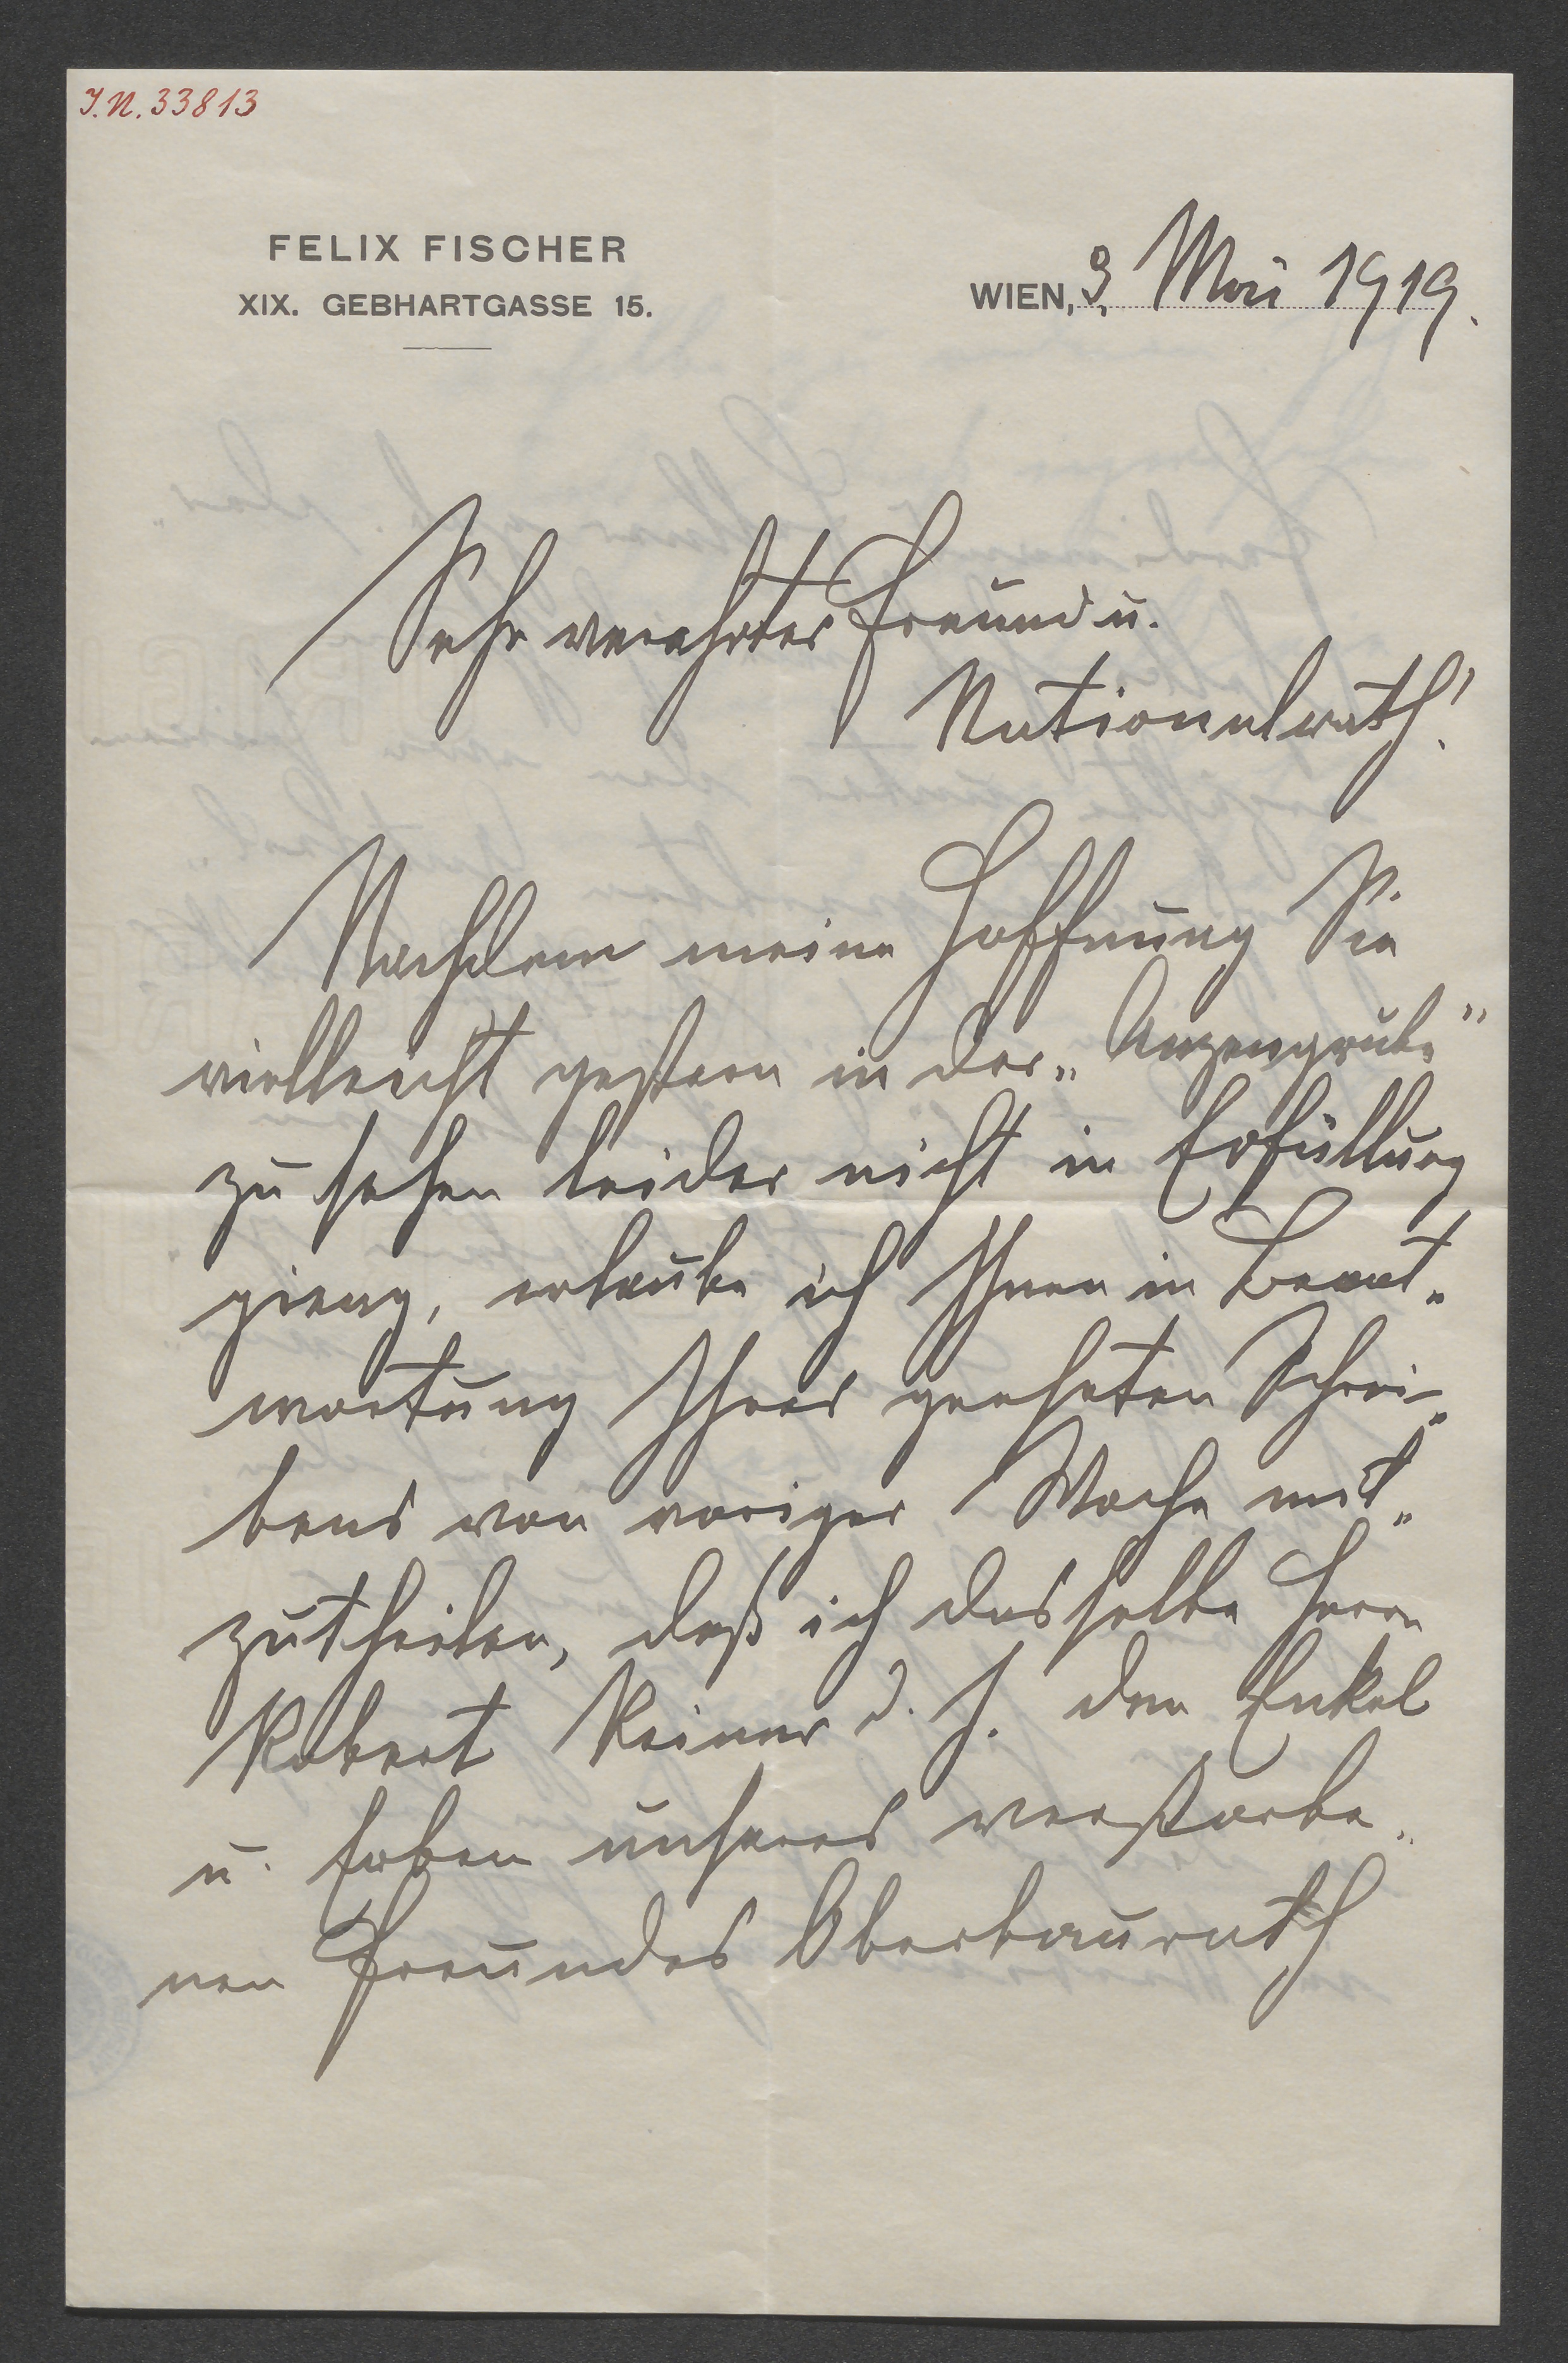 I.N. 33813
FELIX FISCHER
XIX. GEBHARTGASSE 15.
WIEN, 3. Mai 1919.
Sehr verehrter Freund u.
Nationalrath!
Nachdem meine Hoffnung Sie
vielleicht gestern in der „Anzengrube"
zu sehen leider nicht in Erfüllung
gieng, erlaube ich Ihnen in Beant„
wortung Ihres geehrten Schrei„
bens von voriger Woche mit„
zutheilen, daß ich dasselbe Herrn
Robert Reiner d. J. den Enkel
u. Erben unseres verstorbe„
nen Freundes Oberbaurath